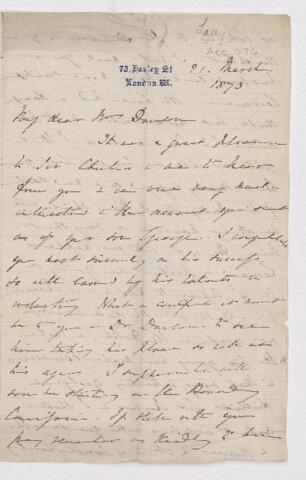 Lady
ACC 976
73, Harley St
London. W.
21. March
1873
My dear Mr Dawson
It was a great pleasure
to Sir Charles & me to hear
from you & we were very much
interested in the account you sent
us of your son George. I congratulate
you most sincerely on his success
so well earned by his talents &
industry. What a comfort it must
be to you & Dr Dawson to see
him taking his place so
his age. I suppose he will
soon be starting on the Boundary
Commission. If still with you
pray remember us kindly to him